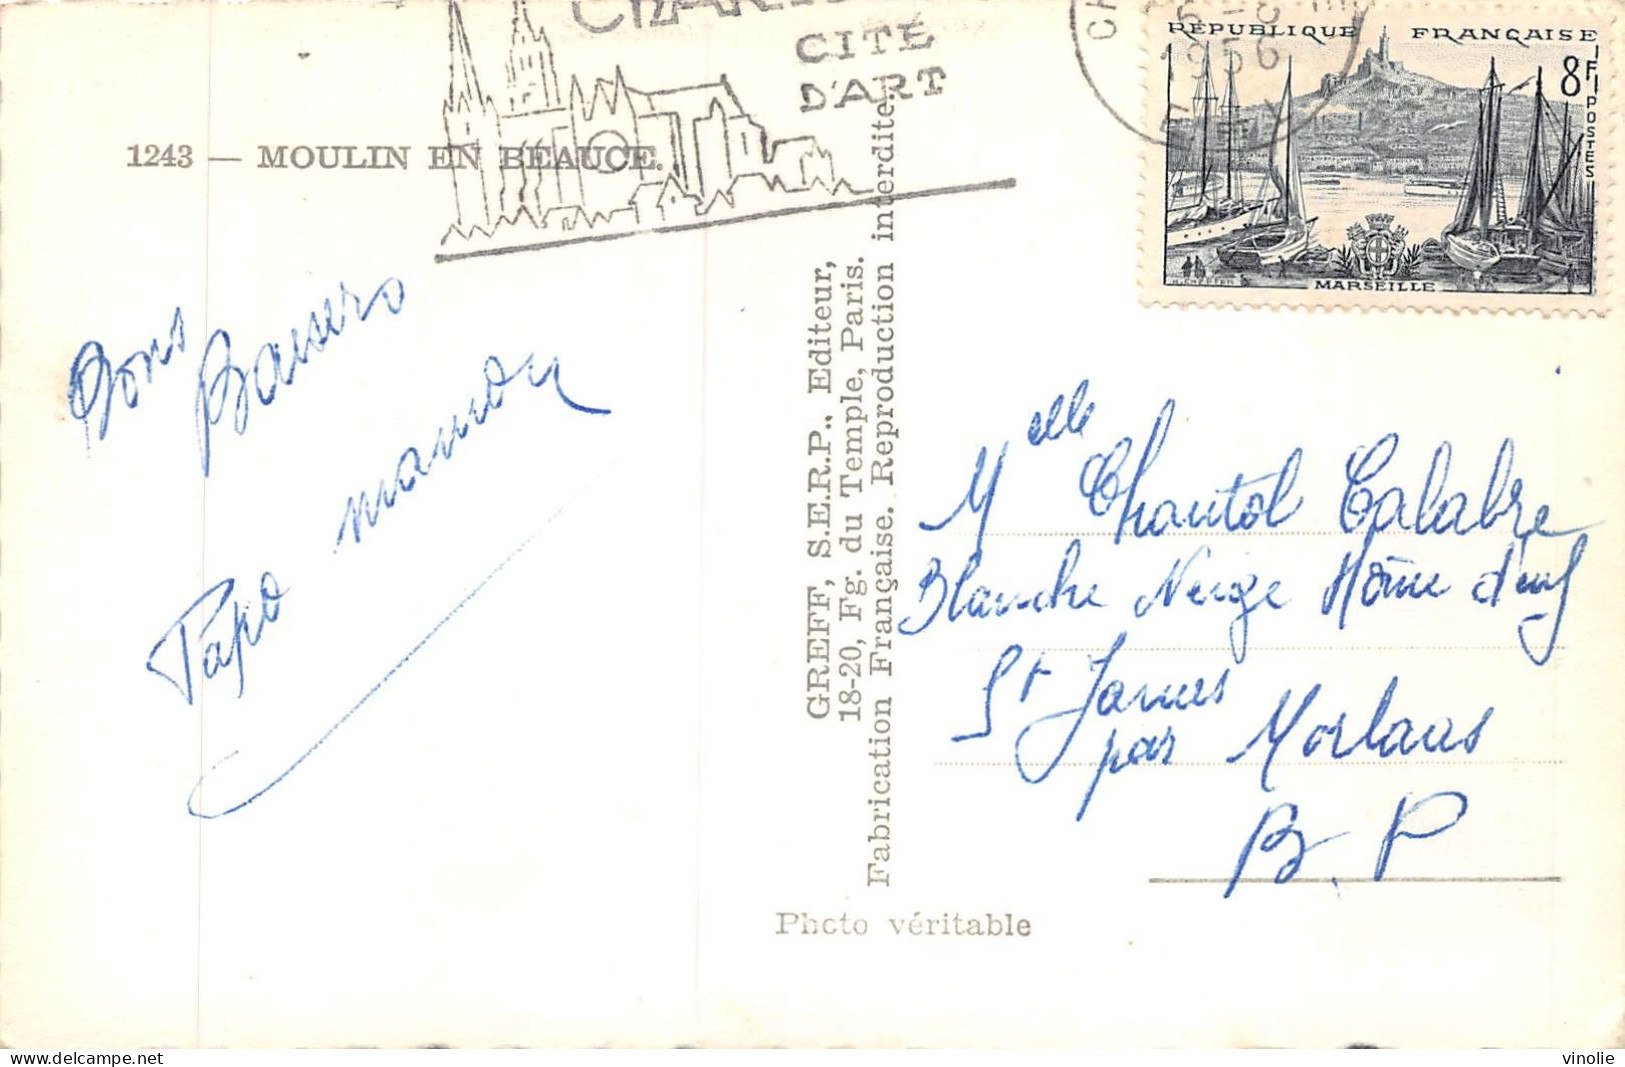 CITÉ
D'ART
1956
RÉPUBLIQUE FRANÇAISE
8F
POSTES
MARSEILLE
1243 — MOULIN EN BEAUCE.
Bons
Baisers
Papa maman
GREFF, S.E.R.P., Editeur,
18-20, Fg. du Temple, Paris.
Fabrication Française. Reproduction interdite.
Melle Chantal Calabre
Blanche Neige Home d'enf
St James
par Morlaas
B. P
Photo véritable
vinolie